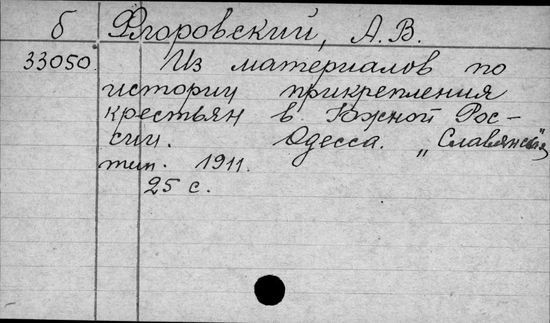 б Флоровский, А.В.
33050. Из материалов по
истории прикрепления
крестьян в Южной Рос-
сии. Одесса. „Славянская"
тип. 1911.
25 с.